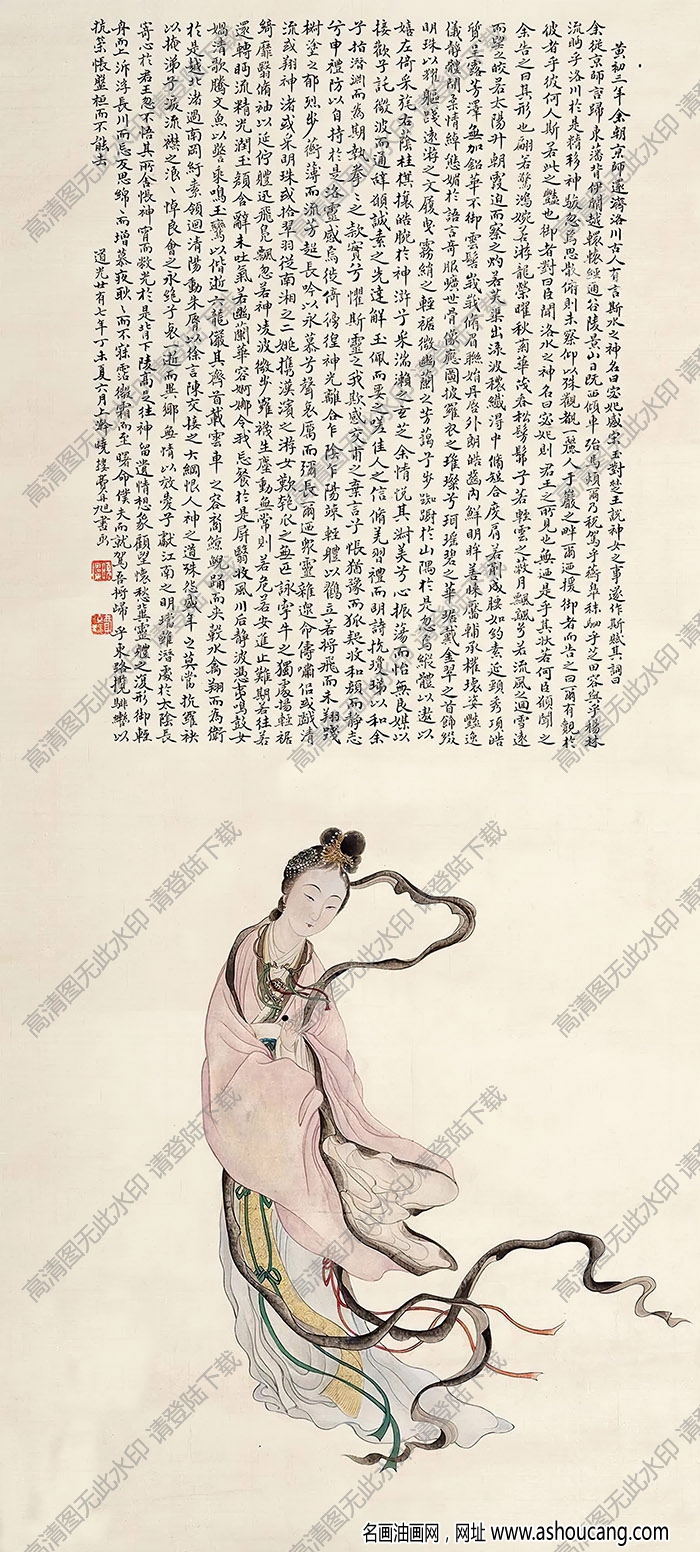 黄初三年余朝京師還濟洛川古人有言斯水之神名曰宓妃感宋玉對楚王說神女之事遂作斯賦其詞曰
余從京師言歸東藩背伊闕越轘轅經通谷陵景山日既西傾車殆馬煩爾乃稅駕乎蘅皋秣駟乎芝田容與乎楊林
流眄乎洛川於是精移神駭忽焉思散俯則未察仰以殊觀覩一麗人于巖之畔爾迺援御者而告之曰爾有覿於
彼者乎彼何人斯若此之豔也御者對曰臣聞洛水之神名曰宓妃則君王之所見也無迺是乎其狀若何臣願聞之
余告之曰其形也翩若驚鴻婉若游龍榮曜秋菊華茂春松髣髴兮若輕雲之蔽月飄飄兮若流風之迴雪遠
而望之皎若太陽升朝霞迫而察之灼若芙蕖出淥波穠纖得中脩短合度肩若削成腰如約素延頸秀項皓
質呈露芳澤無加鉛華不御雲髻峩峩脩眉聯娟丹唇外朗皓齒內鮮明眸善睞靨輔承權瓌姿豔逸
儀靜體閑柔情綽態媚於語言奇服曠世骨像應圖披羅衣之璀璨兮珥瑤碧之華琚戴金翠之首飾綴
明珠以耀軀踐遠游之文履曳霧綃之輕裾微幽蘭之芳藹兮步踟躕於山隅於是忽焉縱體以遨以
嬉左倚采旄右蔭桂旗攘皓腕於神滸兮采湍瀨之玄芝余情悅其淑美兮心振蕩而怡無良媒以
接歡兮託微波而通辭願誠素之先達解玉佩而要之嗟佳人之信脩羌習禮而明詩抗瓊珶以和余
兮指潛淵而為期執拳拳之款實兮懼斯靈之我欺感交甫之棄言兮悵猶豫而狐疑收和顏而靜志
兮申禮防以自持於是洛靈感焉徙倚彷徨神光離合乍陰乍陽竦輕軀以鶴立若將飛而未翔踐
椒塗之郁烈步蘅薄而流芳超長吟以永慕兮聲哀厲而彌長爾迺衆靈雜遝命儔嘯侶或戲清
流或翔神渚或采明珠或拾翠羽從南湘之二妃攜漢濱之游女歎匏瓜之無匹詠牽牛之獨處揚輕裾
綺靡翳脩袖以延佇體迅飛鳧飄忽若神凌波微步羅襪生塵動無常則若危若安進止難期若往若
還轉眄流精光潤玉顏含辭未吐氣若幽蘭華容婀娜令我忘餐於是屏翳收風川后靜波馮夷鳴鼓女
媧清歌騰文魚以警乘鳴玉鸞以偕逝六龍儼其齊首載雲車之容裔鯨鯢踊而夾轂水禽翔而為衛
於是越北沚過南岡紆素領迴清陽動朱脣以徐言陳交接之大綱恨人神之道殊怨盛年之莫當抗羅袂
以掩涕兮淚流襟之浪浪悼良會之永絕兮哀一逝而異鄉無微情以效愛兮獻江南之明璫雖潛處於太陰長
寄心於君王忽不悟其所舍悵神宵而蔽光於是背下陵高足往神留遺情想象顧望懷愁冀靈體之復形御輕
舟而上泝浮長川而忘反思綿綿而增慕夜耿耿而不寐霑繁霜而至曙命僕夫而就駕吾將歸乎東路攬騑轡以
抗策悵盤桓而不能去
道光廿有七年丁未夏六月上澣曉樓費丹旭書
高清图无此水印 请登陆下载
名画油画网，网址 www.ashoucang.com